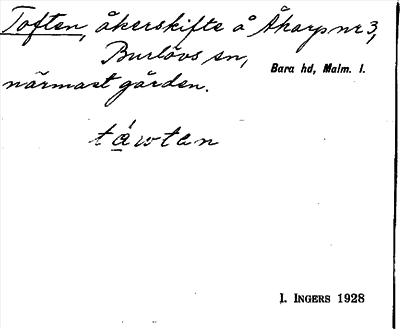 Toften, åkerskifte å Åkarp nr 3,
Burlövs sn, Bara hd, Malm. l.
närmast gården.
táwtan
I. INGERS 1928